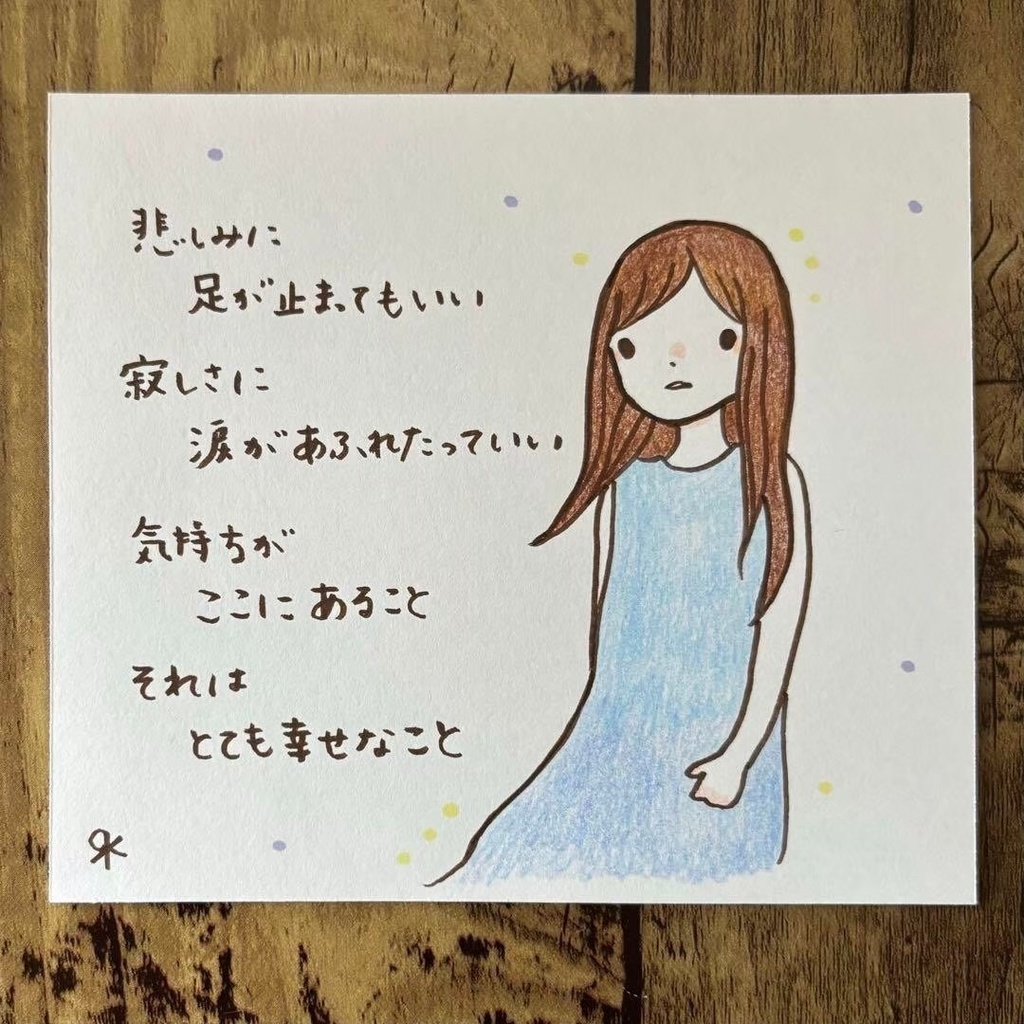 悲しみに
足が止まってもいい
寂しさに
涙があふれたっていい
気持ちが
ここにあること
それは
とても幸せなこと